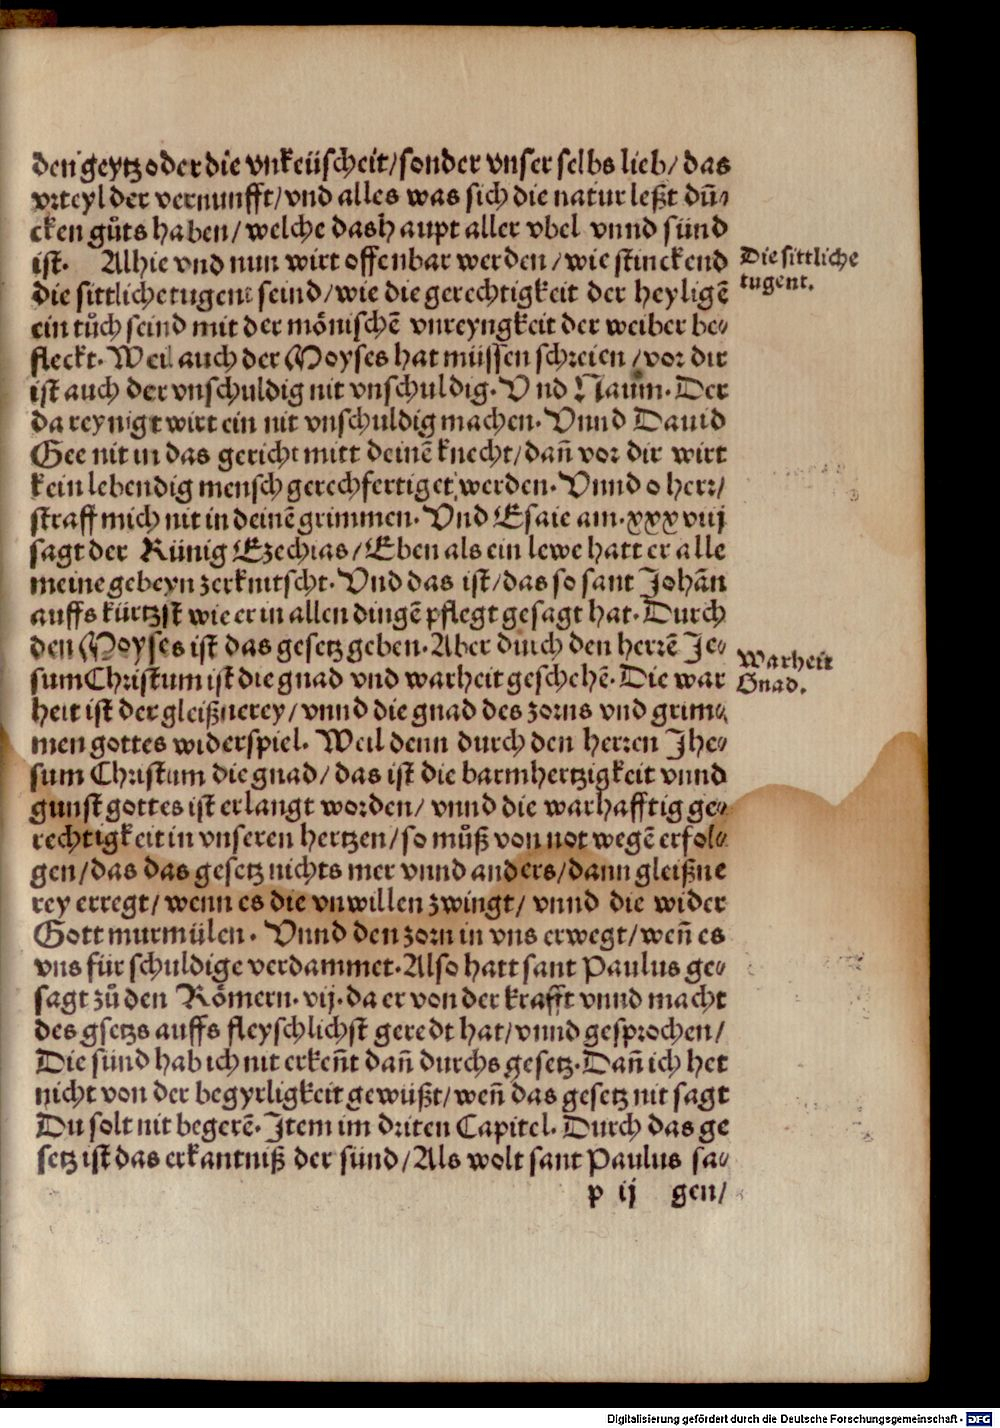 den geytz oder die vnkeüscheit/sonder vnser selbs lieb/das
vrteyl der vernunfft/vnd alles was sich die natur leßt dū⸗
cken gůts haben/welche dash aupt aller vbel vnnd sünd
ist. Alhie vnd nun wirt offenbar werden/wie stinckend
Die sittliche
tugent.
die sittliche tugent seind/wie die gerechtigkeit der heyligē
ein tůch seind mit der mönischē vnreyngkeit der weiber be⸗
fleckt. Weil auch der Moyses hat müssen schreien/vor dir
ist auch der vnschuldig nit vnschuldig. Vnd Naum. Der
da reynigt wirt ein nit vnschuldig machen. Vnnd Dauid
Gee nit in das gericht mitt deinē knecht/dañ vor dir wirt
kein lebendig mensch gerechfertiget werden. Vnnd o herr/
straff mich nit in deinē grimmen. Vnd Esaie am. xxxviij
sagt der Künig Ezechias/Eben als ein lewe hatt er alle
meine gebeyn zerknitscht. Vnd das ist/das so sant Johān
auffs kürtzst wie er in allen dingē pflegt gesagt hat. Durch
den Moyses ist das gesetz geben. Aber durch den herrē Je⸗
sum Christum ist die gnad vnd warheit geschehē. Die war
Warheit
Gnad.
heit ist der gleißnerey/vnnd die gnad des zorns vnd grim⸗
men gottes widerspiel. Weil denn durch den herren Jhe⸗
sum Christum die gnad/das ist die barmhertzigkeit vnnd
gunst gottes ist erlangt worden/vnnd die warhafftig ge⸗
rechtigkeit in vnseren hertzen/so můß von not wegē erfol⸗
gen/das das gesetz nichts mer vnnd anders/dann gleißne
rey erregt/wenn es die vnwillen zwingt/vnnd die wider
Gott murmülen. Vnnd den zorn in vns erwegt/weñ es
vns für schuldige verdammet. Also hatt sant Paulus ge⸗
sagt zů den Römern. vij. da er von der krafft vnnd macht
des gsetzs auffs fleyschlichst geredt hat/vnnd gesprochen/
Die sünd hab ich nit erkeñt dañ durchs gesetz. Dañ ich het
nicht von der begyrligkeit gewüßt/weñ das gesetz nit sagt
Du solt nit begerē. Item im driten Capitel. Durch das ge
setz ist das erkantniß der sünd/Als wolt sant Paulus sa⸗
p ij gen/
Digitalisierung gefördert durch die Deutsche Forschungsgemeinschaft - DFG